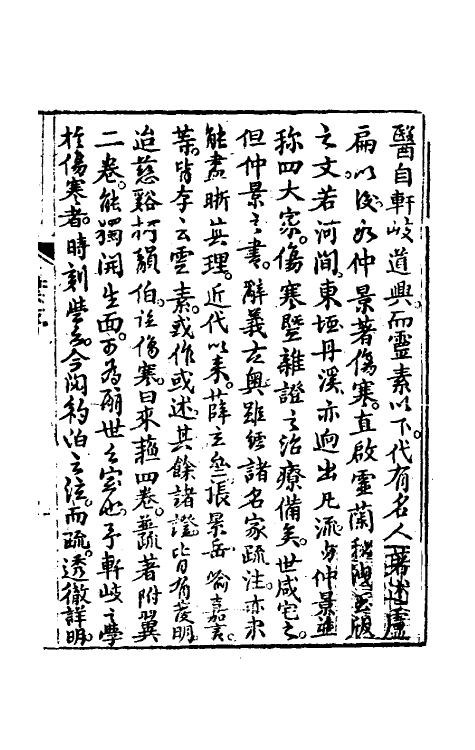 醫自軒岐道興。而靈素以下。代有名人。著述。盧
扁以後。孰仲景著傷寒。直啟靈蘭秘。洩玉版
之文。若河間。東垣。丹溪。亦迥出凡流。與仲景並
称四大家。傷寒暨雜證之治療備矣。世咸宅之。
但仲景之書。辭義古奧。雖經諸名家疏注。亦未
能盡晰其理。近代以来。薛立齋。張景岳。喻嘉言。
等。皆本之靈素。或作或述。其餘諸證。皆有發明。
迨慈谿柯韻伯。註傷寒。曰來蘓四卷。並疏著附翼
二卷。能獨開生面。可為醫世之宗也。予軒岐之學
於傷寒者。時刻營營。今閱韵伯之註。而疏。透徹詳明。